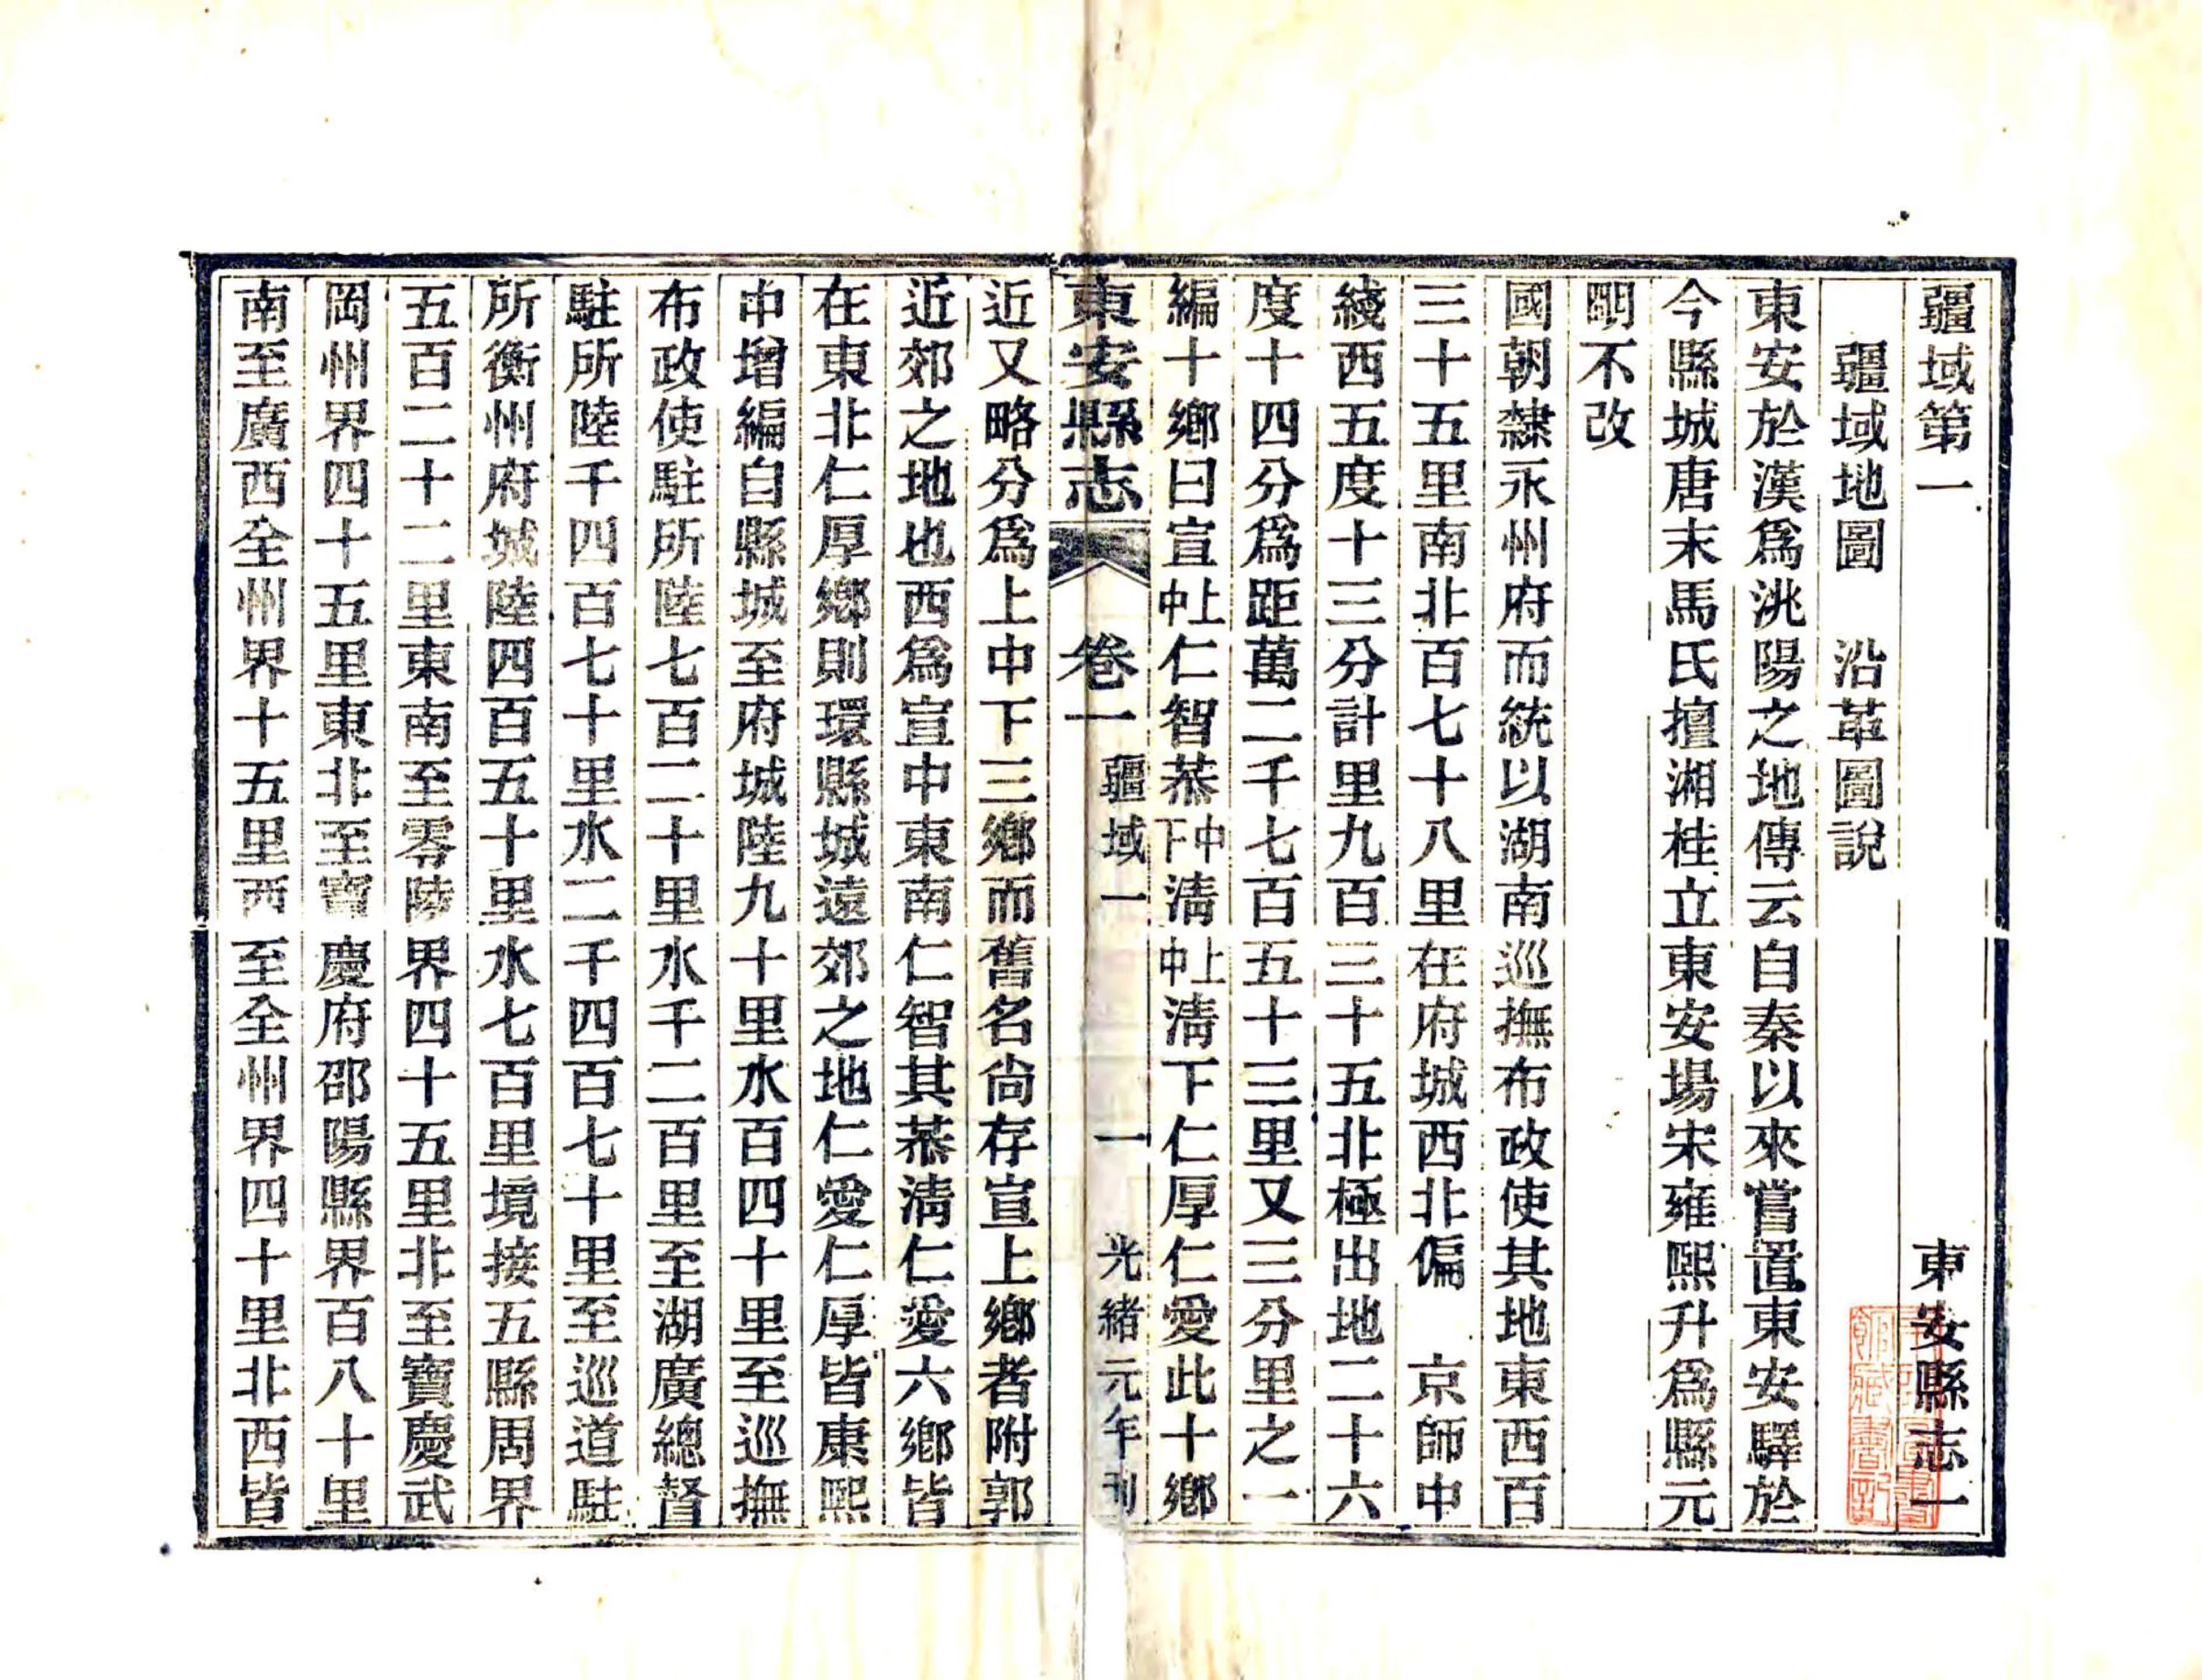 疆域第一　東安縣志一
疆域地圖　沿革圖說
東安於漢爲洮陽之地傳云自秦以來嘗置東安驛於
今縣城唐末馬氏擅湘桂立東安場宋雍熙升爲縣元
明不改
國朝隸永州府而統以湖南巡撫布政使其地東西百
三十五里南北百七十八里在府城西北偏　京師中
綫西五度十三分計里九百三十五北極出地二十六
度十四分爲距萬二千七百五十三里又三分里之一
編十鄉曰宣上中仁智恭中下清上中清下仁厚仁愛此十鄉
東安縣志　卷一　疆域一　一　光緒元年刊
近又略分爲上中下三鄉而舊名尙存宣上鄉者附郭
近郊之地也西爲宣中東南仁智其恭清仁愛六鄉皆
在東北仁厚鄉則環縣城遠郊之地仁愛仁厚皆康熙
中增編自縣城至府城陸九十里水百四十里至巡撫
布政使駐所陸七百二十里水千二百里至湖廣總督
駐所陸千四百七十里水二千四百七十里至巡道駐
所衡州府城陸四百五十里水七百里境接五縣周界
五百二十二里東南至零陵界四十五里北至寶慶武
岡州界四十五里東北至寶慶府邵陽縣界百八十里
南至廣西全州界十五里西至全州界四十里北西皆